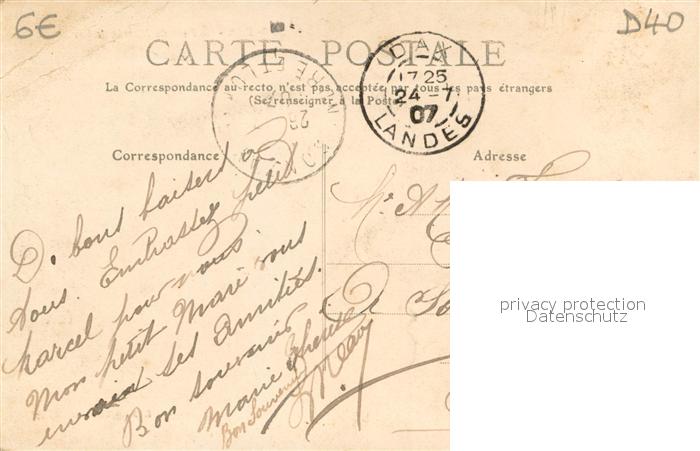 6€
D40
CARTE POSTALE
La Correspondance au recto n'est pas acceptée par tous les pays étrangers
(Se renseigner à la Poste)
DAX
17 25
24 - 7
07
LANDES
Correspondance
Adresse
D. bons baisers à
tous. Embrassez petit
Marcel pour nous.
Mon petit Mari vous
envoie ses Amitiés.
Bon souvenir
Marie Thérèse
Bon Souvenir
privacy protection
Datenschutz